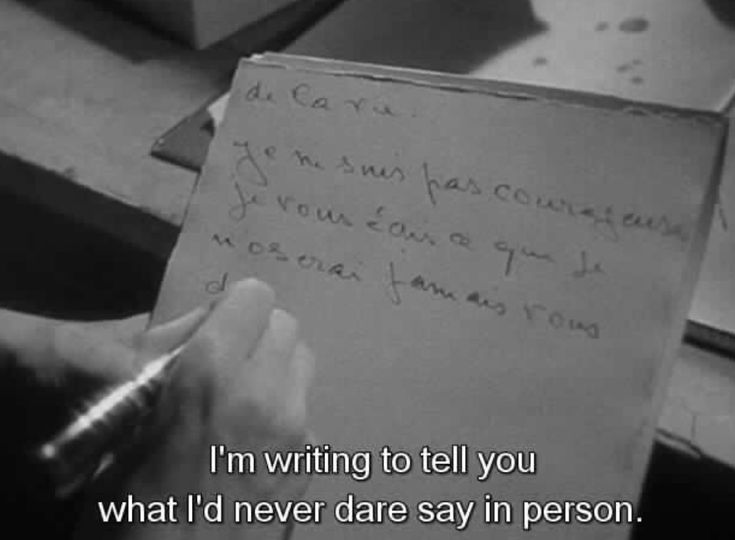 de la vie.
Je ne suis pas courageuse
je vous écris ce que je
n'oserai jamais vous
d
I'm writing to tell you
what I'd never dare say in person.